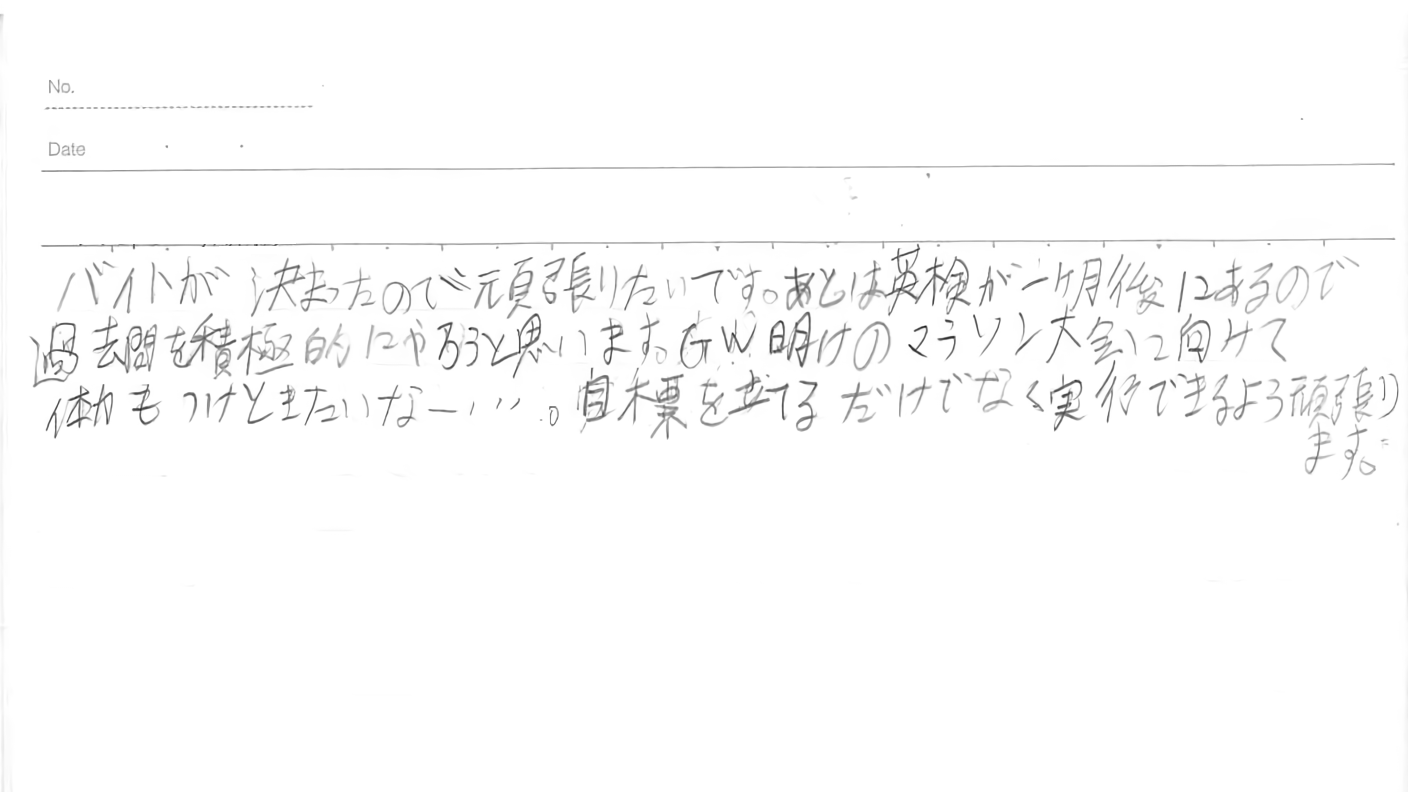 No.
Date
バイトが決まったので頑張りたいです。あとは英検が一ヶ月後にあるので
過去問を積極的にやろうと思います。GW明けのマラソン大会に向けて
体力もつけときたいなー…。目標を立てるだけでなく実行できるよう頑張り
ます。